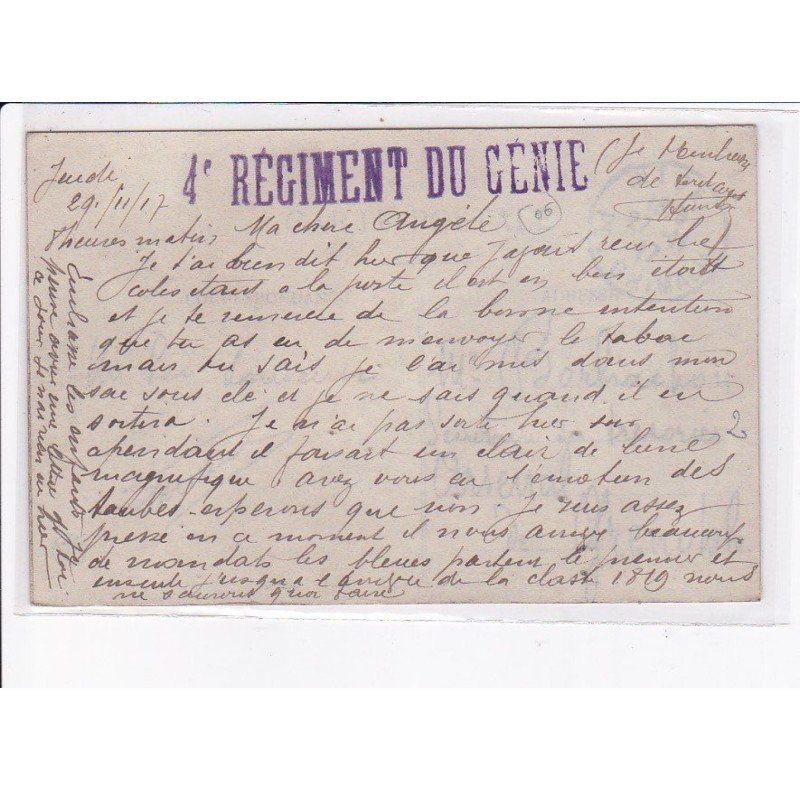 4e RÉGIMENT DU GÉNIE
Jeudi
29/11/17
8 heures matin
Ma chere Angèle
(Je
de
Je t'ai bien dit hier que j'avais reçu le
colis étant a la poste il est en bon état
et je te remercie de la bonne intention
que tu as eu de m'envoyer le tabac
mais tu sais je l'ai mis dans mon
sac sous clé et je ne sais quand il en
sortira. Je n'ai pas sorti hier soir
cependant il faisait un clair de lune
magnifique avez vous eu l'émotion des
taubes esperons que non je suis assez
pressé en ce moment il nous arrive beaucoup
de mandats les bleues partent le premier et
ensuite jusqu'a l'arrivée de la classe 1819 nous
ne saurons quoi faire
Embrasse les enfants
pense avoir une lettre de toi
ce jour je n'ai rien eu hier
06
2